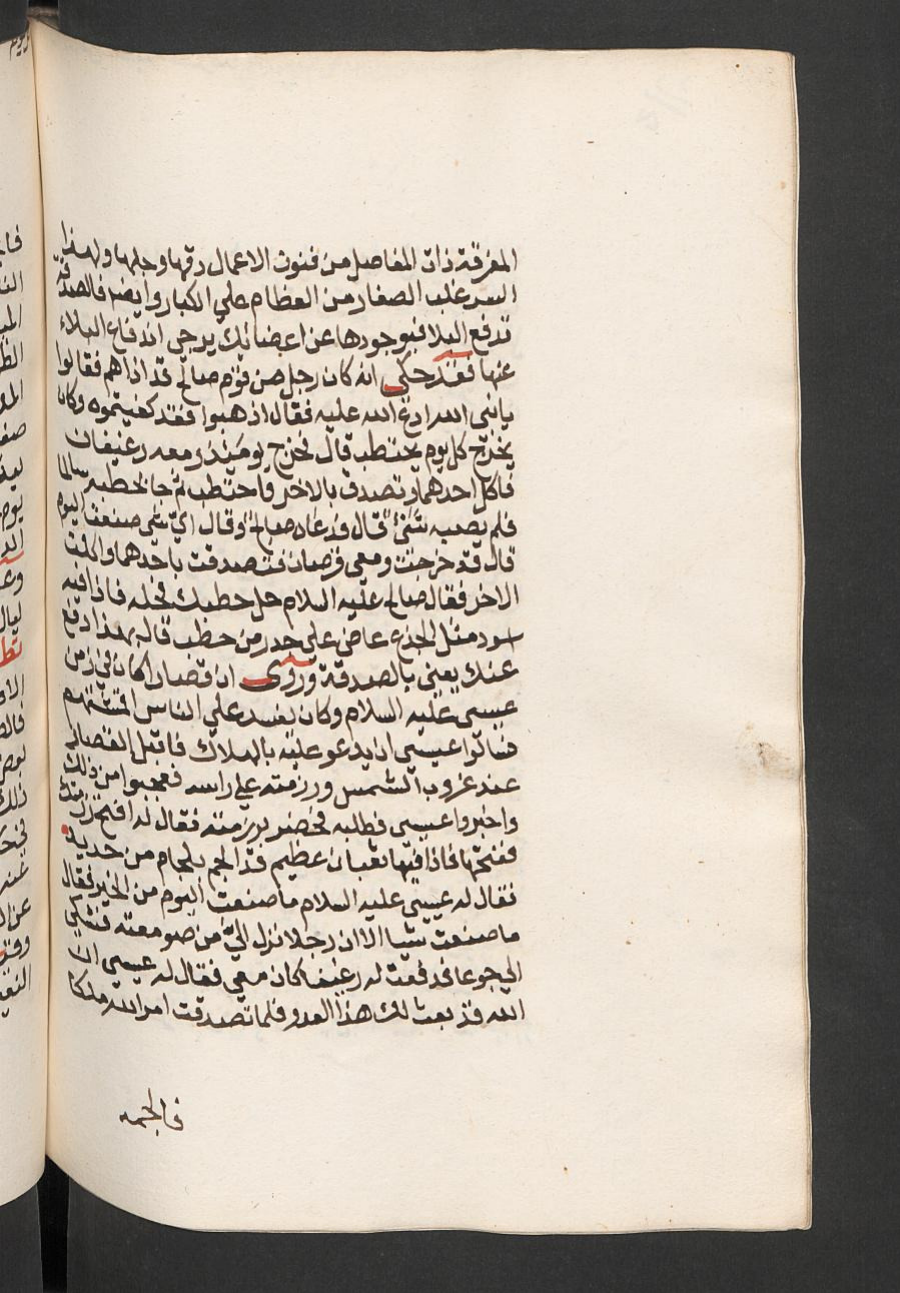 المغرقة ذات المفاصل من فنون الاعمال دقها وجلها ولهذا
السر غلب الصغار من العظام علي الكبار وايضا فالصدقة
تدفع البلا فبوجودها عن اعضائك يرجى اندفاع البلاء
عنها فقد حكى انه كان رجل من قوم صالح قد اذاهم فقالوا
يانبي الله ادع الله عليه فقال اذهبوا فقد كفيتموه وكان
يخرج كل يوم يحتطب قال فخرج يومئذ ومعه رغيفان
فاكل احدهما وتصدق بالاخر فاحتطب ثم جا بحطبه سالما
فلم يصبه شئ قال فدعاه صالح وقال اي شي صنعت اليوم
قال قد خرجت ومعي قرصان فتصدقت باحدهما واكلت
الاخر فقال صالح عليه السلام حل حطبك فحله فاذا فيه
اسود مثل الجذع عاض علي جدر من حطب قال بهذا دفع
عنك يعني بالصدقة وروى ان قصارا كان في زمن
عيسى عليه السلام وكان يفسد علي الناس اقمشتهم
فسالوا عيسى ان يدعو عليه بالهلاك فاقبل القصار
عند غروب الشمس ورزمته علي راسه فعجبوا من ذلك
واخبروا عيسي فطلبه فحضر برزمته فقال له افتح رزمتك
ففتحها فاذا فيها ثعبان عظيم قد الجم بلجام من حديد
فقال له عيسي عليه السلام ما صنعت اليوم من الخير فقال
ما صنعت شيا الا ان رجلا نزل الي من صومعته فشكى
الي جوعا فدفعت له رغيفا كان معي فقال له عيسى ان
الله قد بعث لك هذا العدو فلما تصدقت امر الله ملكا
فالجمه